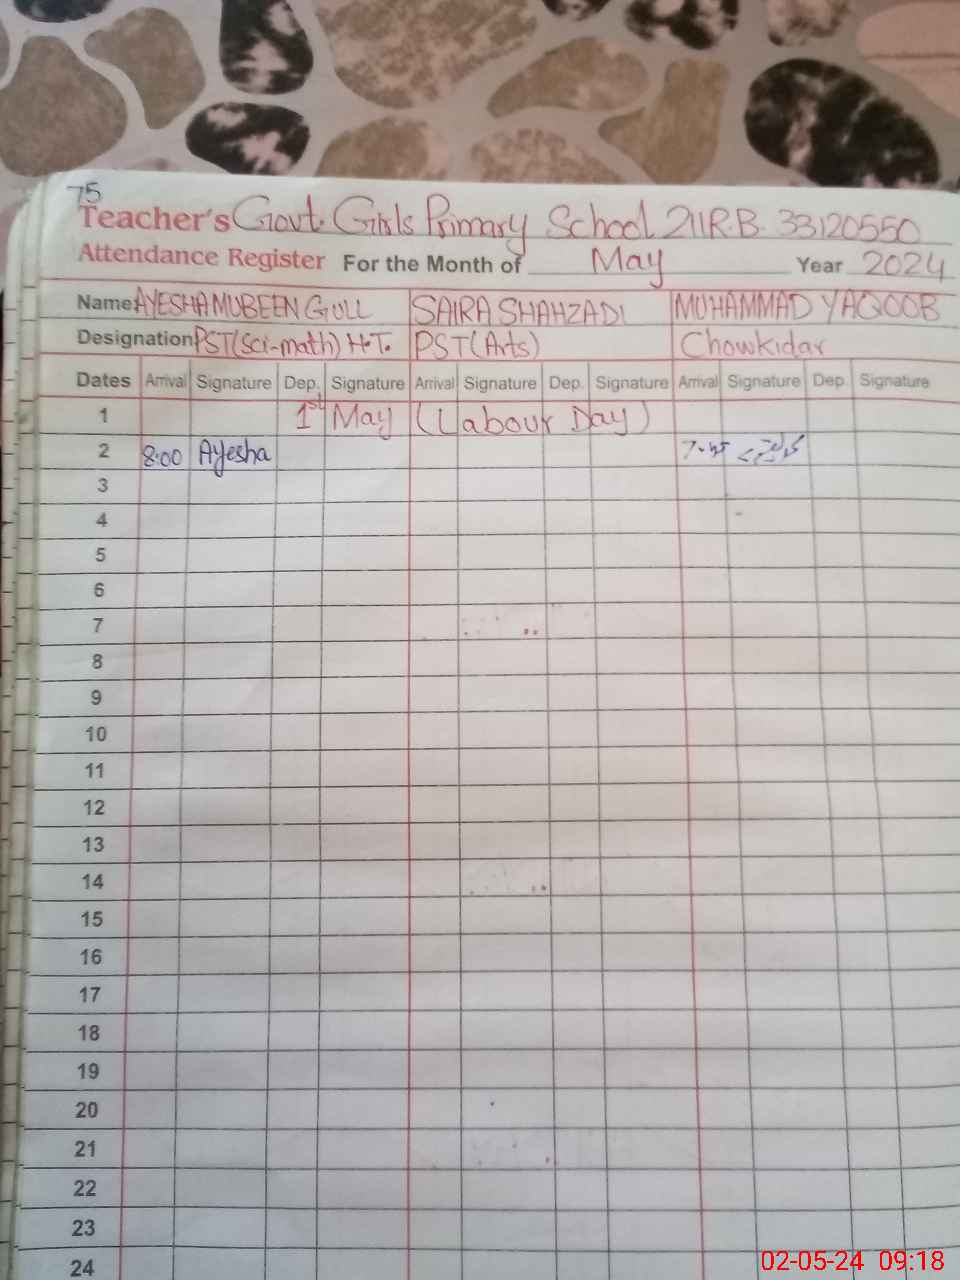 75
Teacher's Govt. Girls Primary School 211R.B. 33120550
Attendance Register For the Month of May Year 2024
Name AYESHA MUBEEN GULL SAIRA SHAHZADI MUHAMMAD YAQOOB
Designation PST(Sci-math) H.T. PST(Arts) Chowkidar
Dates Arrival Signature Dep. Signature Arrival Signature Dep. Signature Arrival Signature Dep. Signature
1 1st May (Labour Day)
2 8:00 Ayesha 7:45
3
4
5
6
7
8
9
10
11
12
13
14
15
16
17
18
19
20
21
22
23
24
02-05-24 09:18